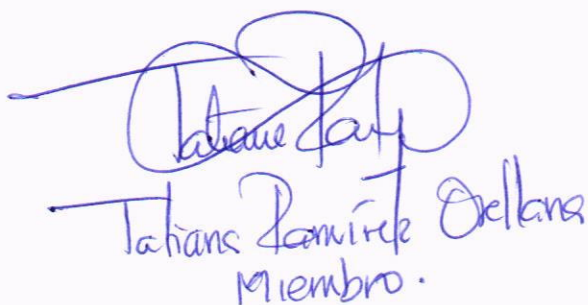 Tatiana
Tatiana Ramírez Orellana
Miembro.